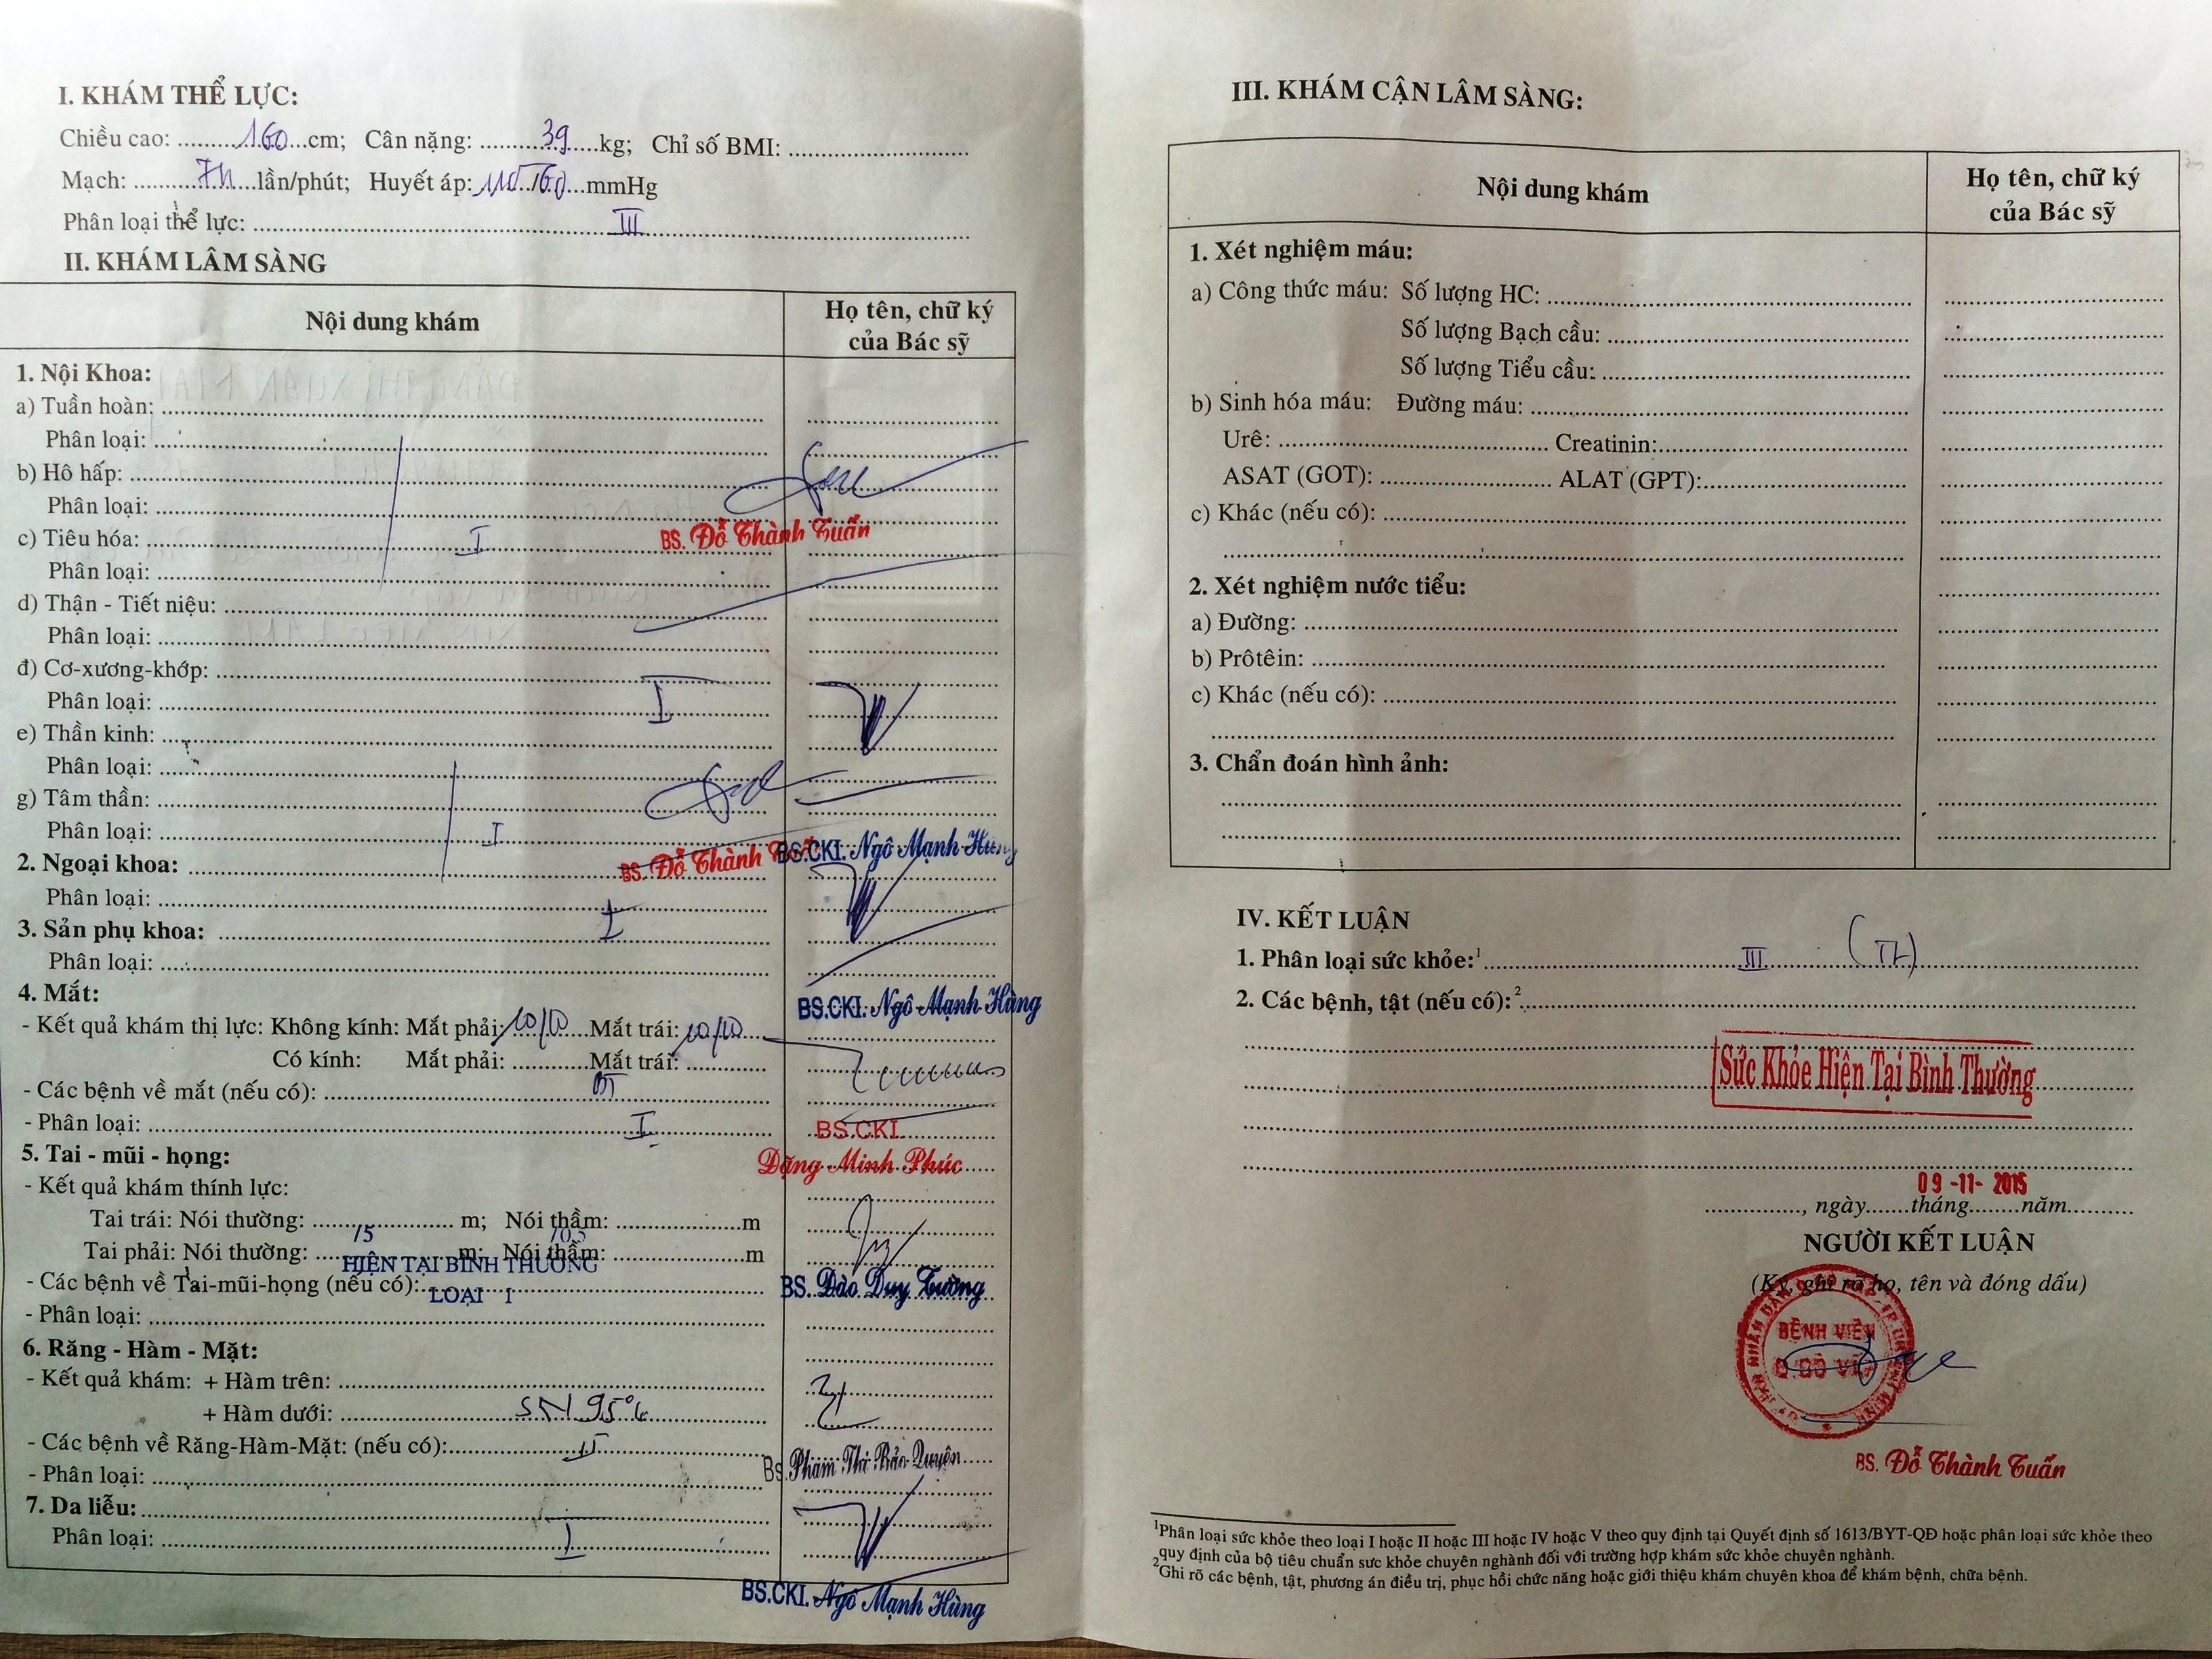 I. KHÁM THỂ LỰC:
Chiều cao: ..........160...cm; Cân nặng: ..........39...kg; Chỉ số BMI: ..........................
Mạch: .............lần/phút; Huyết áp: ...mmHg
Phân loại thể lực: ..........III..........
II. KHÁM LÂM SÀNG
Nội dung khám
Họ tên, chữ ký
của Bác sỹ
1. Nội Khoa:
a) Tuần hoàn: ..........
Phân loại: ..........
b) Hô hấp: ..........
Phân loại: ..........
c) Tiêu hóa: .......... I ..........
BS. Đỗ Thành Tuấn
Phân loại: ..........
d) Thận - Tiết niệu: ..........
Phân loại: ..........
đ) Cơ-xương-khớp: ..........
Phân loại: .......... I ..........
e) Thần kinh: ..........
Phân loại: ..........
g) Tâm thần: ..........
Phân loại: .......... I ..........
BS. Đỗ Thành
2. Ngoại khoa: ..........
BS.CKI. Ngô Mạnh Hùng
Phân loại: .......... I ..........
3. Sản phụ khoa: ..........
Phân loại: ..........
4. Mắt:
BS.CKI. Ngô Mạnh Hùng
- Kết quả khám thị lực: Không kính: Mắt phải: 10/10 .... Mắt trái: 10/10 ...
Có kính: Mắt phải: .......... Mắt trái: ..........
- Các bệnh về mắt (nếu có): ..........
- Phân loại: .......... I ..........
BS.CKI.
Đặng Minh Phúc
5. Tai - mũi - họng:
- Kết quả khám thính lực:
Tai trái: Nói thường: .......... m; Nói thầm: .......... m
Tai phải: Nói thường: .......... m; Nói thầm: .......... m
HIỆN TẠI BÌNH THƯỜNG
- Các bệnh về Tai-mũi-họng (nếu có): ..........
LOẠI I
BS. Đào Duy Tường
- Phân loại: ..........
6. Răng - Hàm - Mặt:
- Kết quả khám: + Hàm trên: ..........
+ Hàm dưới: ..........
- Các bệnh về Răng-Hàm-Mặt: (nếu có): ..........
- Phân loại: ..........
BS. Phạm Thị Bảo Quyên
7. Da liễu: ..........
Phân loại: .......... I ..........
BS.CKI. Ngô Mạnh Hùng
III. KHÁM CẬN LÂM SÀNG:
Nội dung khám
Họ tên, chữ ký
của Bác sỹ
1. Xét nghiệm máu:
a) Công thức máu: Số lượng HC: ..........
Số lượng Bạch cầu: ..........
Số lượng Tiểu cầu: ..........
b) Sinh hóa máu: Đường máu: ..........
Urê: .......... Creatinin: ..........
ASAT (GOT): .......... ALAT (GPT): ..........
c) Khác (nếu có): ..........
2. Xét nghiệm nước tiểu:
a) Đường: ..........
b) Prôtêin: ..........
c) Khác (nếu có): ..........
3. Chẩn đoán hình ảnh:
IV. KẾT LUẬN
1. Phân loại sức khỏe:1 .......... III .......... (TL) ..........
2. Các bệnh, tật (nếu có):2 ..........
Sức Khỏe Hiện Tại Bình Thường
09 -11- 2015
.........., ngày......tháng......năm......
NGƯỜI KẾT LUẬN
(Ký, ghi rõ họ, tên và đóng dấu)
BỆNH VIỆN
BS. Đỗ Thành Tuấn
1Phân loại sức khỏe theo loại I hoặc II hoặc III hoặc IV hoặc V theo quy định tại Quyết định số 1613/BYT-QĐ hoặc phân loại sức khỏe theo
quy định của bộ tiêu chuẩn sức khỏe chuyên nghành đối với trường hợp khám sức khỏe chuyên nghành.
2Ghi rõ các bệnh, tật, phương án điều trị, phục hồi chức năng hoặc giới thiệu khám chuyên khoa để khám bệnh, chữa bệnh.